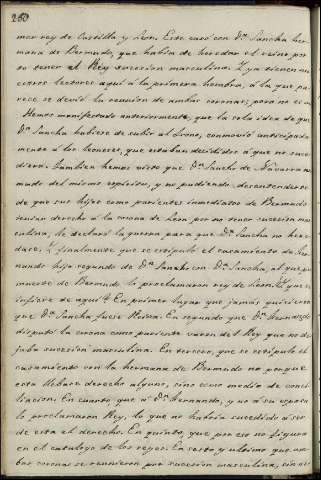 260
mer rey de Castilla y Leon. Este casó con Dª Sancha her-
mana de Bermudo, que habia de heredar el reino por
no tener el Rey sucesion masculina. Y ya tienen nu-
estros lectores aqui á la primera hembra, á la que pa-
rece se devió la reunion de ambas coronas; pero no es asi.
Hemos manifestado anteriormente, que la sola idea de que
Dª Sancha hubiere de subir al trono, conmovió anticipada-
mente á los leoneses, que estaban decididos á que no suce-
diera. Tambien hemos visto que Dn Sancho de Navarra ani-
mado del mismo espiritu, y no pudiendo desentenderse
de que sus hijos como parientes inmediatos de Bermudo
tenian derecho á la corona de Leon por no tener sucesion mas-
culina, le declaró la guerra para que Dª Sancha no here-
dase. Y finalmente que se estipuló el casamiento de Fer-
nando hijo segundo de Dn Sancho con Dª Sancha, al que por
muerte de Bermudo lo proclamaron rey de Leon. ¿Y que se
infiere de aqui? En primer lugar que jamas quisieron
que Dª Sancha fuese Reina. En segundo que Dn Hernando
disputó la corona como pariente varon del Rey que no de-
jaba sucesion masculina. En tercero, que se estipuló el
casamiento con la hermana de Bermudo no porque
esta llebase derecho alguno, sino como medio de conci-
liacion. En cuarto que á Dn Hernando, y no á su esposa
lo proclamaron Rey, lo que no habria sucedido á ser
de esta el derecho. En quinto, que por eso no figura
en el catalogo de los reyes. En sexto y ultimo que am-
bas coronas se reunieron por sucesion masculina, sin ex-